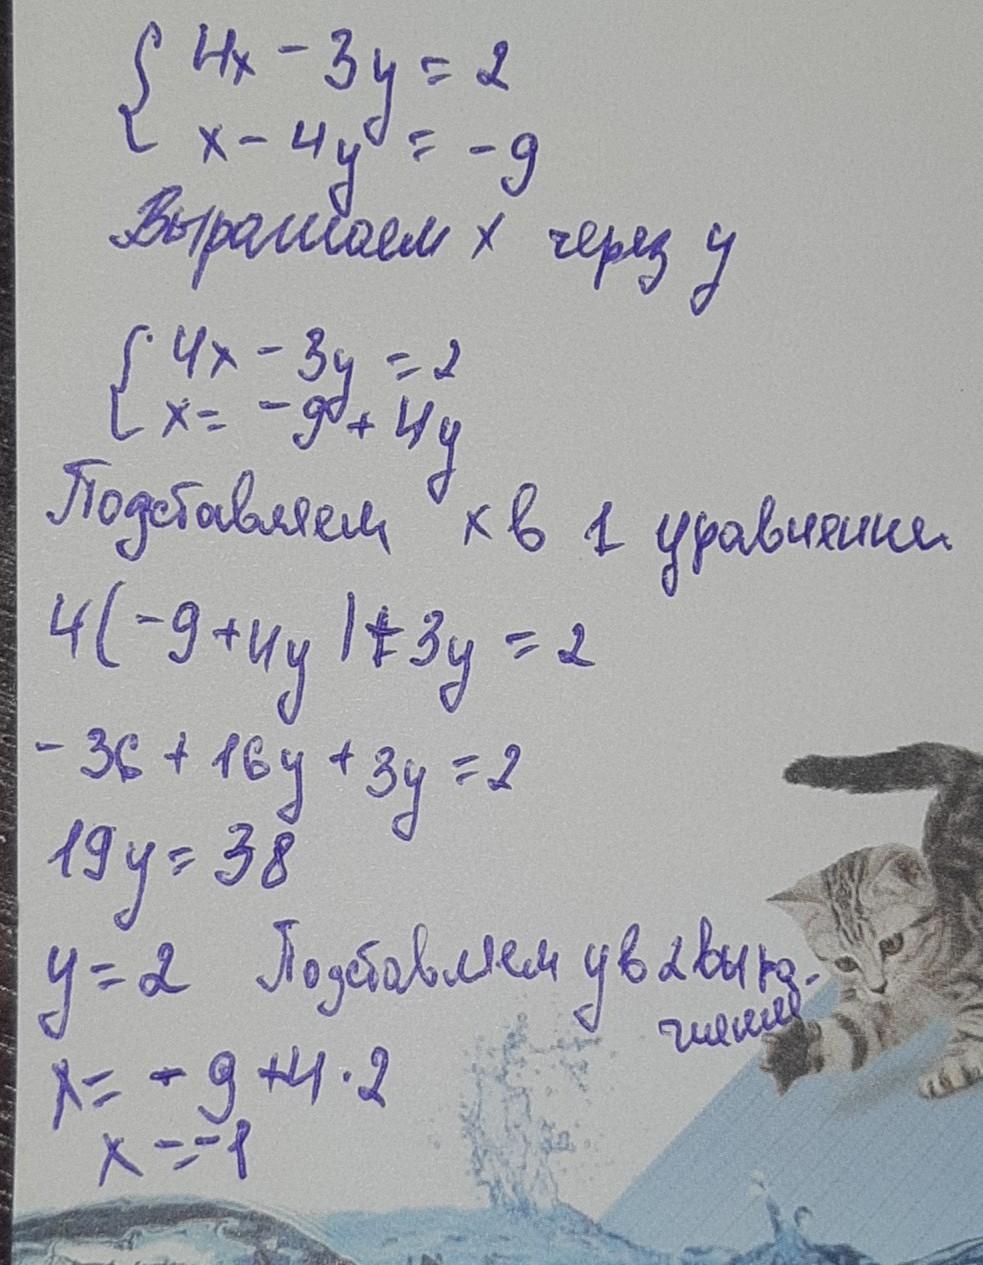 { 4x - 3y = 2
x - 4y = -9
Выражаем x через y
{ 4x - 3y = 2
x = -9 + 4y
Подставляем x в 1 уравнение
4(-9+4y)+3y = 2
-36 + 16y + 3y = 2
19y = 38
y = 2 Подставляем y в 2
x = -9 +4·2
x = -1